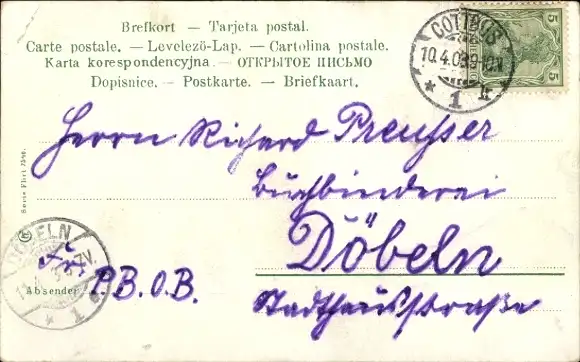 Brefkort — Tarjeta postal.
Carte postale. — Levelező-Lap. — Cartolina postale.
Karta korespondencyjna. — ОТКРЫТОЕ ПИСЬМО
Dopisnice. — Postkarte. — Briefkaart.
COTTBUS
10.4.03 9-10.V.
* 1 k
5
5
Herrn Richard Preußer
Buchbinderei
Döbeln
Stadthausstraße
DÖBELN
* 1
Absender
P.B.O.B.